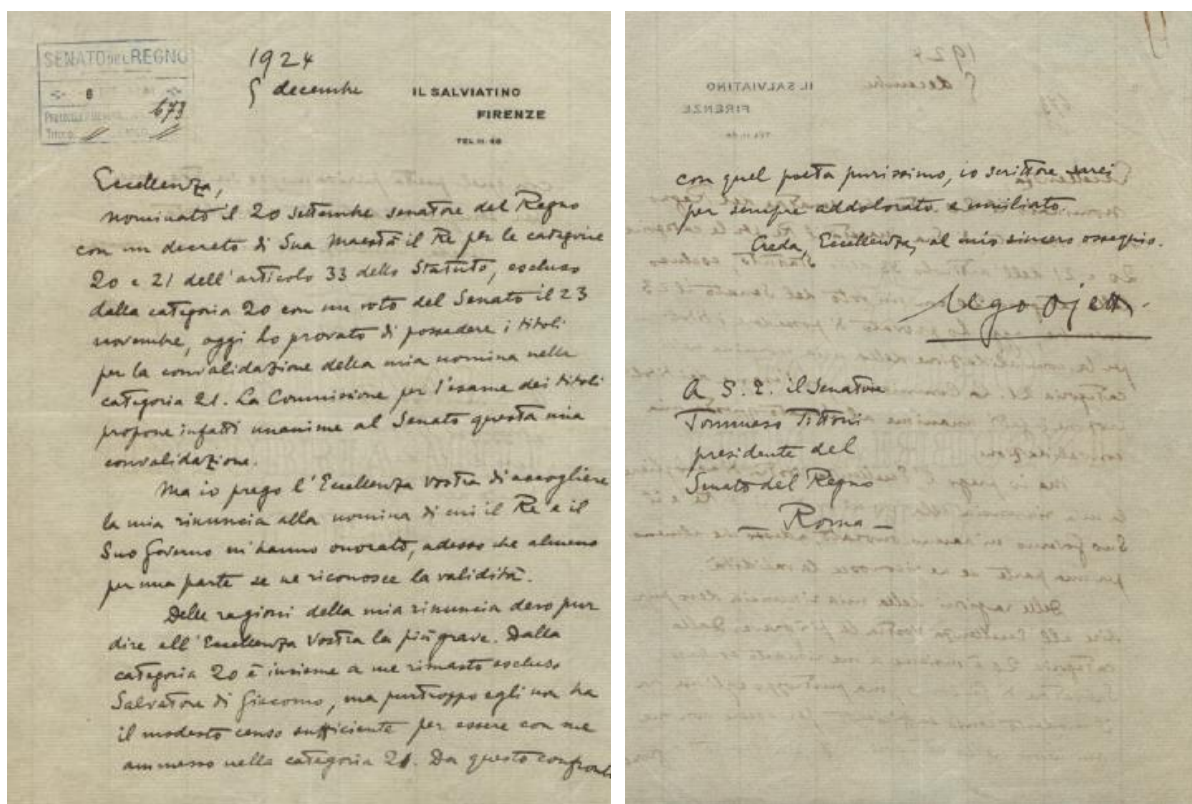 SENATO DEL REGNO
6
673
1924
5 decembre
IL SALVIATINO
FIRENZE
TEL 11-46
Eccellenza,
nominato il 20 settembre senatore del Regno
con un decreto di Sua Maestà il Re per le categorie
20 e 21 dell'articolo 33 dello Statuto, escluso
dalla categoria 20 con un voto del Senato il 23
novembre, oggi ho provato di possedere i titoli
per la convalidazione della mia nomina nella
categoria 21. La Commissione per l'esame dei titoli
propone infatti unanime al Senato questa mia
convalidazione.
Ma io prego l'Eccellenza Vostra di accogliere
la mia rinuncia alla nomina di cui il Re e il
Suo Governo m'hanno onorato, adesso che almeno
per una parte se ne riconosce la validità.
Delle ragioni della mia rinuncia devo pur
dire all'Eccellenza Vostra la più grave. Dalla
categoria 20 è insieme a me rimasto escluso
Salvatore di Giacomo, ma purtroppo egli non ha
il modesto censo sufficiente per essere con me
ammesso nella categoria 21. Da questo confronto
con quel poeta purissimo, io scrittore sarei
per sempre addolorato e umiliato.
Creda, Eccellenza, al mio sincero ossequio.
Ugo Ojetti.
A S. E. il Senatore
Tommaso Tittoni
presidente del
Senato del Regno
— Roma —